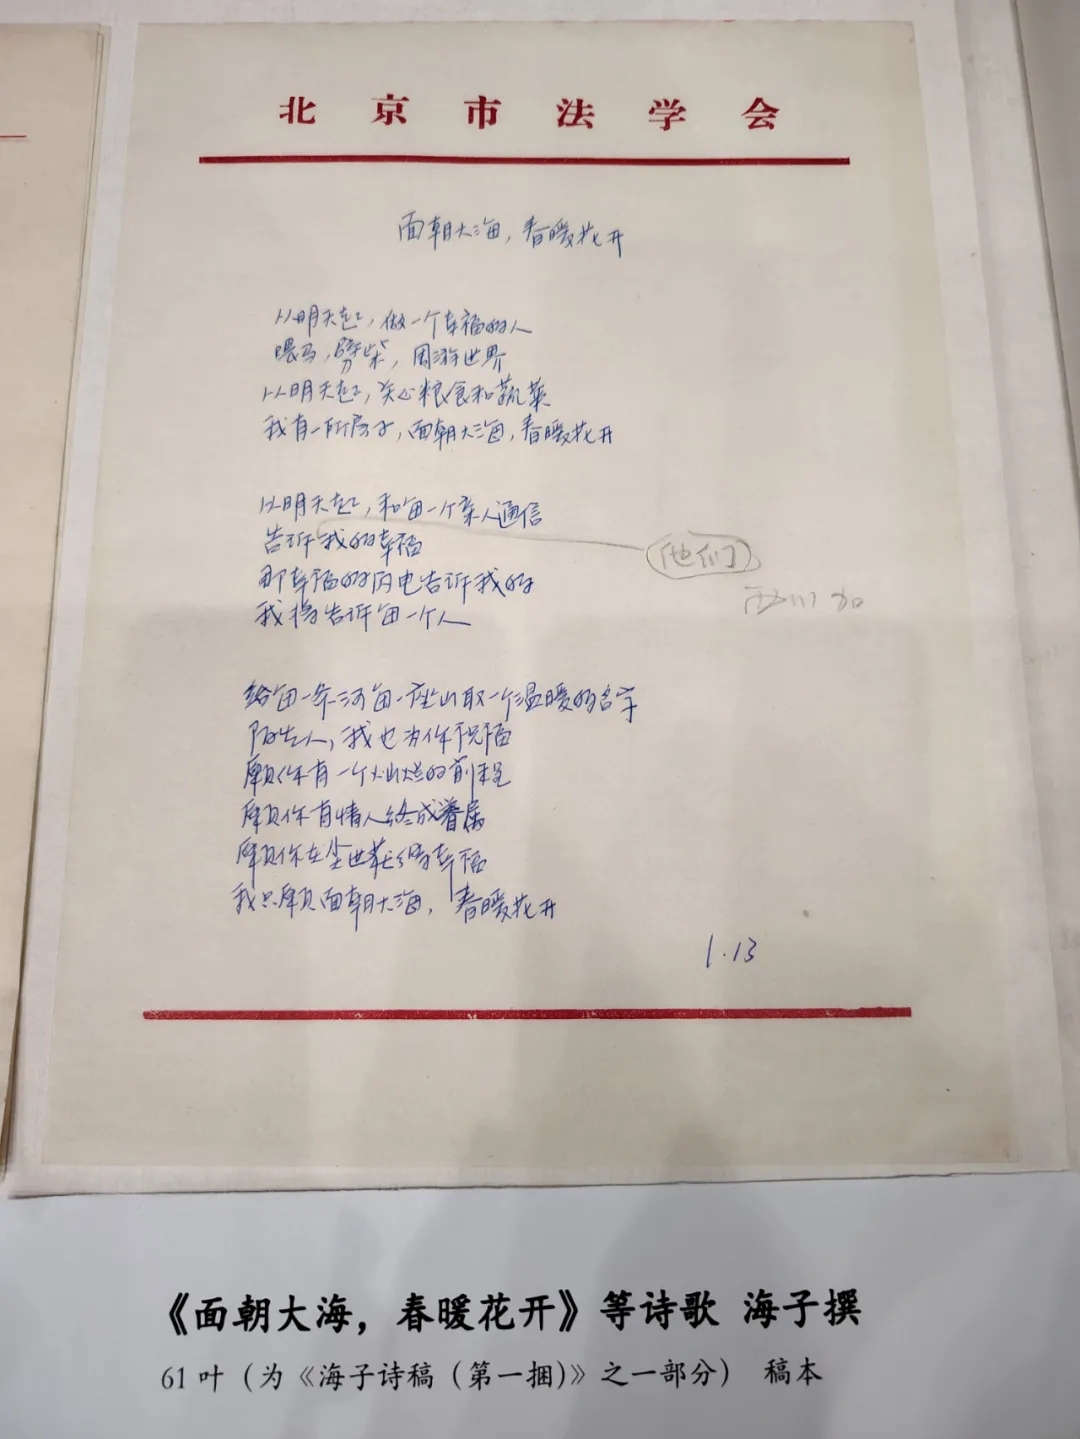 北京市法学会
面朝大海，春暖花开
从明天起，做一个幸福的人
喂马，劈柴，周游世界
从明天起，关心粮食和蔬菜
我有一所房子，面朝大海，春暖花开
从明天起，和每一个亲人通信
告诉我的幸福
他们
西川加
那幸福的闪电告诉我的
我将告诉每一个人
给每一条河每一座山取一个温暖的名字
陌生人，我也为你祝福
愿你有一个灿烂的前程
愿你有情人终成眷属
愿你在尘世获得幸福
我只愿面朝大海，春暖花开
1.13
《面朝大海，春暖花开》等诗歌 海子撰
61叶（为《海子诗稿（第一捆）》之一部分） 稿本